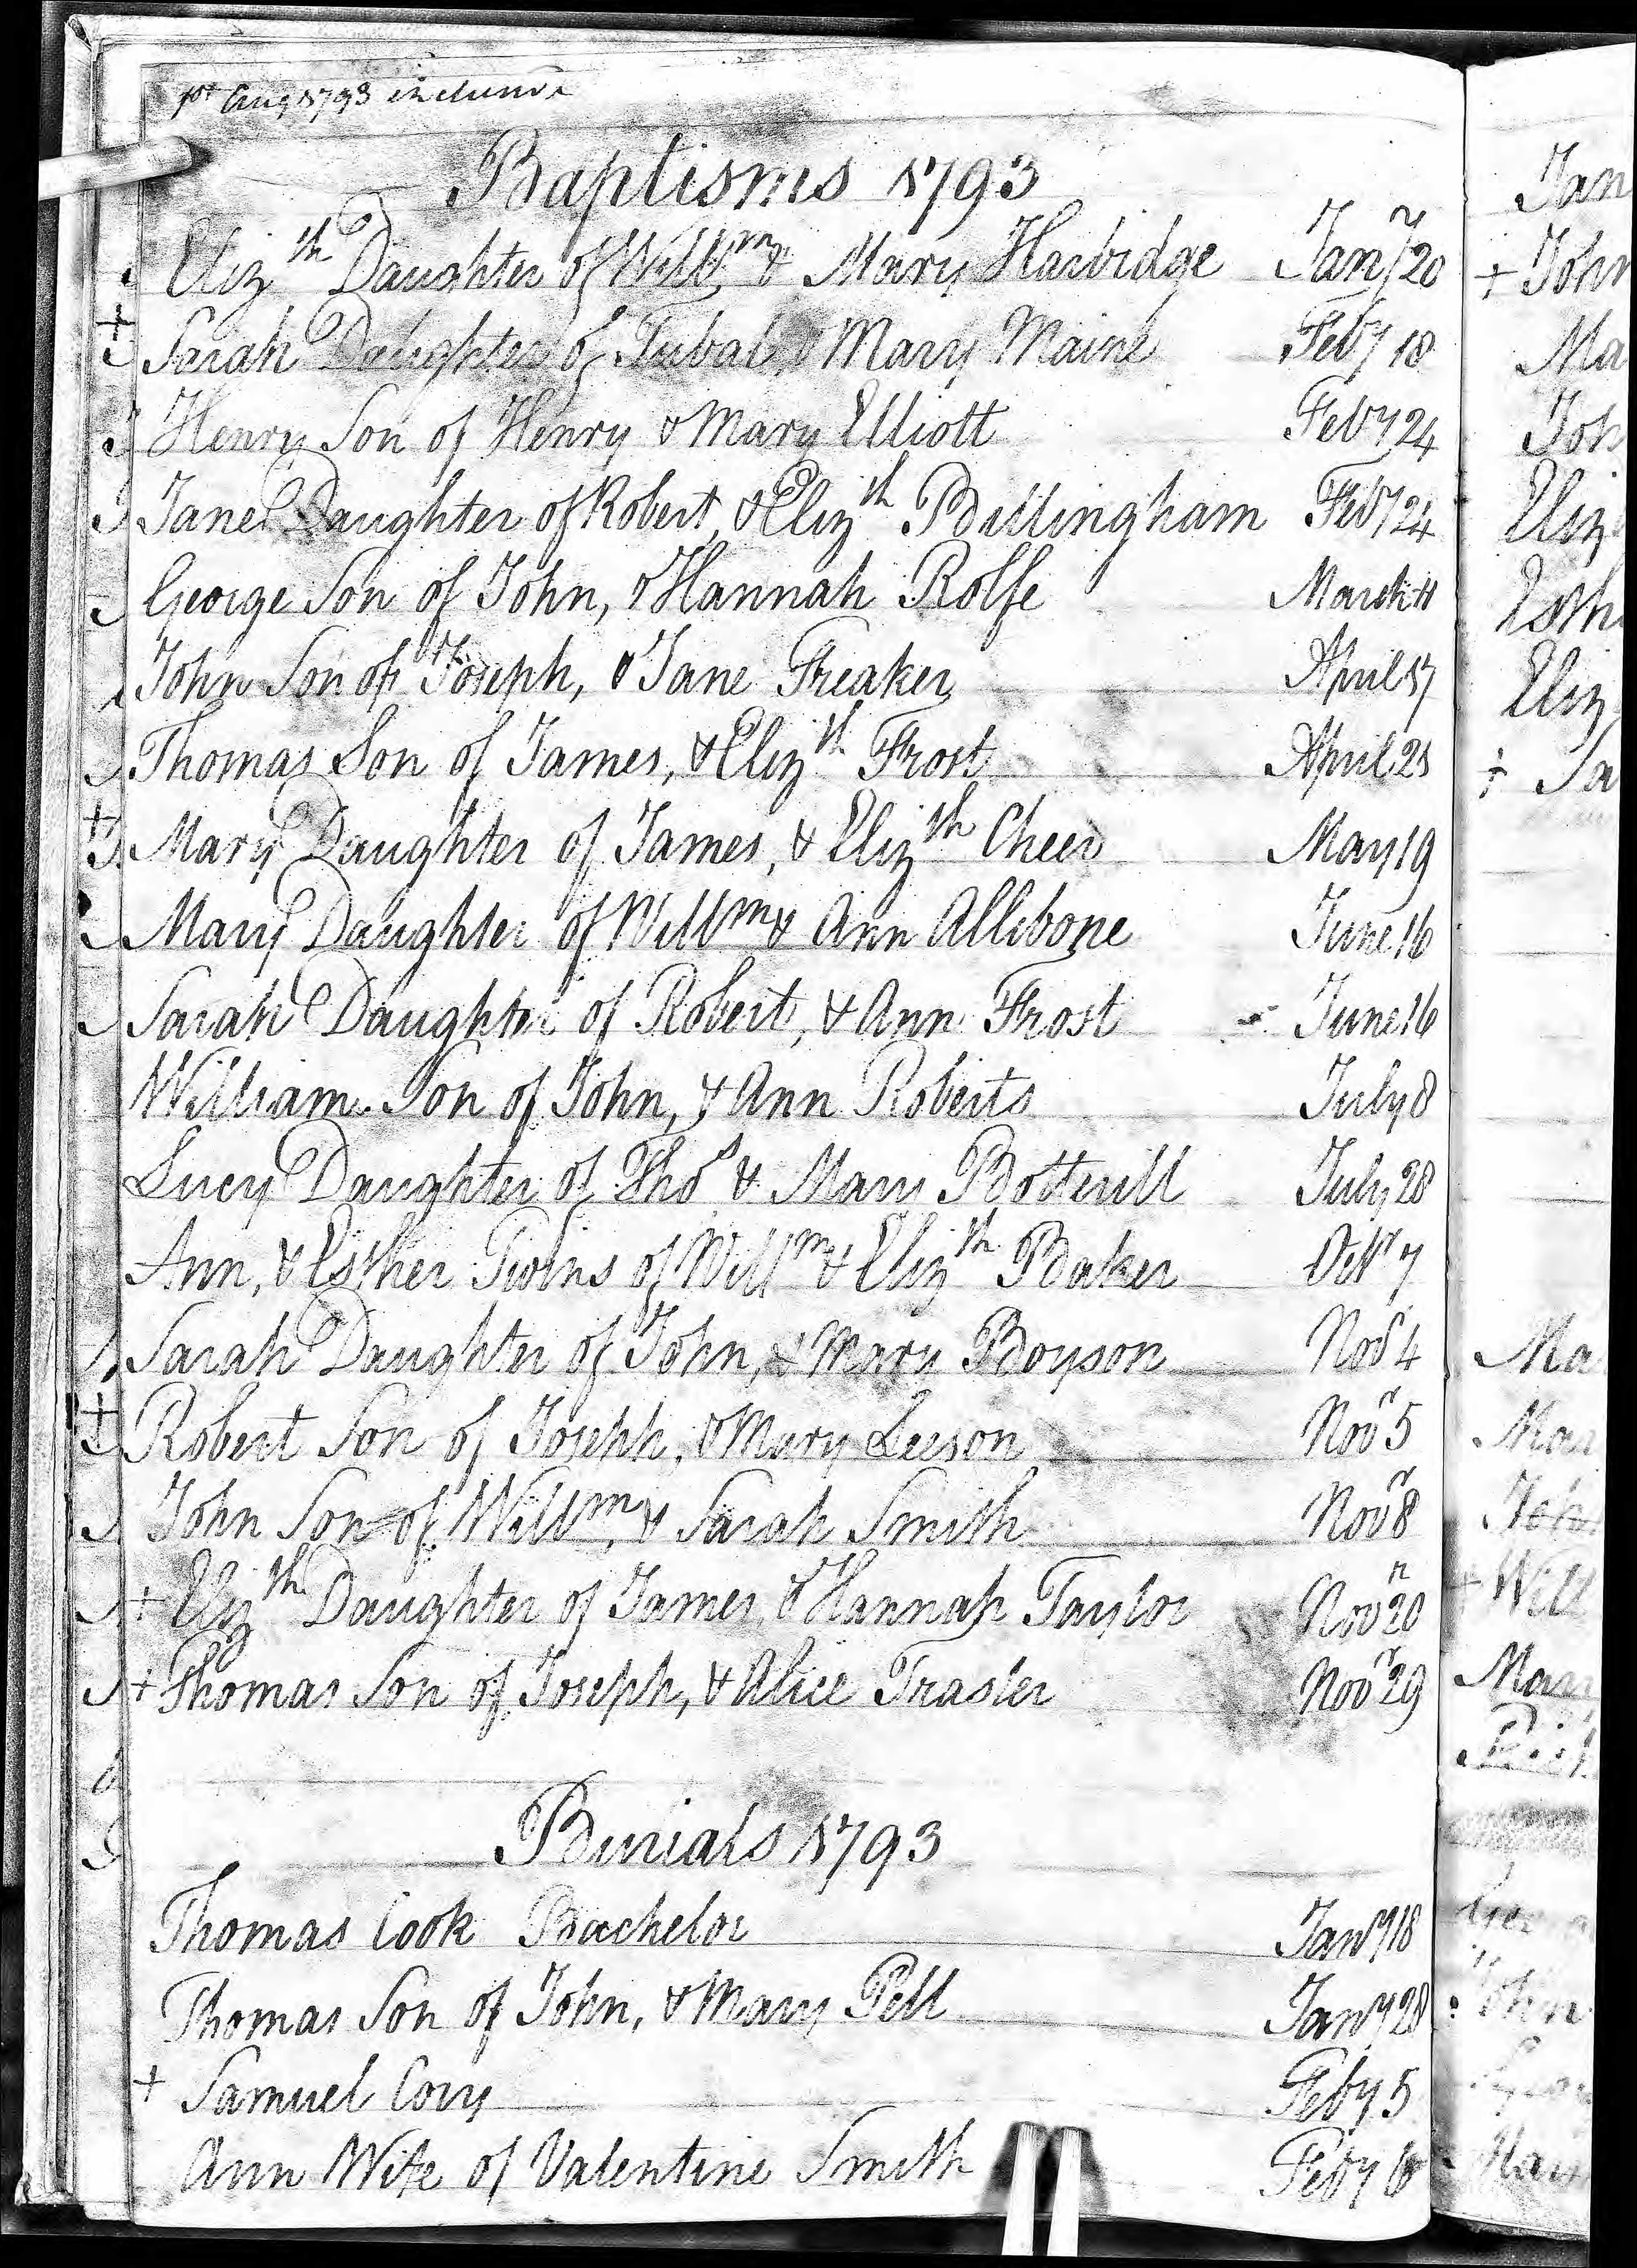 1st Aug 1793 inclusive
Baptisms 1793
Elizth Daughter of Willm & Mary Harbidge Jany 20
+ Sarah Daughter of Tubal & Mary Maine Feby 18
Henry Son of Henry & Mary Elliott Feby 24
Jane Daughter of Robert, & Elizth Billingham Feby 24
George Son of John, & Hannah Rolfe March 11
John Son of Joseph, & Jane Freaker April 17
Thomas Son of James, & Elizth Frost April 21
+ Mary Daughter of James, & Elizth Cheer May 19
Mary Daughter of Willm & Ann Allibone June 16
Sarah Daughter of Robert, & Ann Frost June 16
William Son of John, & Ann Roberts July 8
Lucy Daughter of Thos & Mary Botterill July 28
Ann, & Esther Twins of Willm & Elizth Baker Octr 7
Sarah Daughter of John, & Mary Boyson Novr 4
+ Robert Son of Joseph, & Mary Leeson Novr 5
John Son of Willm, & Sarah Smith Novr 8
+ Elizth Daughter of James, & Hannah Taylor Novr 20
+ Thomas Son of Joseph, & Alice Trasler Novr 29
Burials 1793
Thomas Cook Bachelor Jany 18
Thomas Son of John, & Mary Pell Jany 28
+ Samuel Cory Feby 5
Ann Wife of Valentine Smith Feby
Jan
+ John
Ma
Joh
Eliz
Esth
Eliz
+ Sa
Ma
Mar
Joh
+ Will
Mar
John